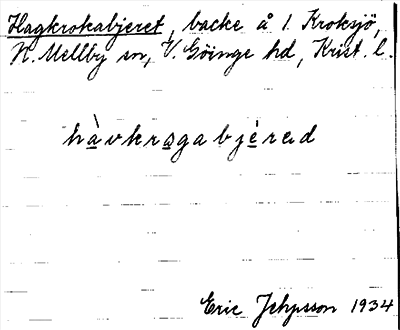 Hagkrokabjeret, backe å 1. Kroksjö,
N. Mellby sn, V. Göinge hd, Krist. l.
hàvkrogabjèred
Eric 1934